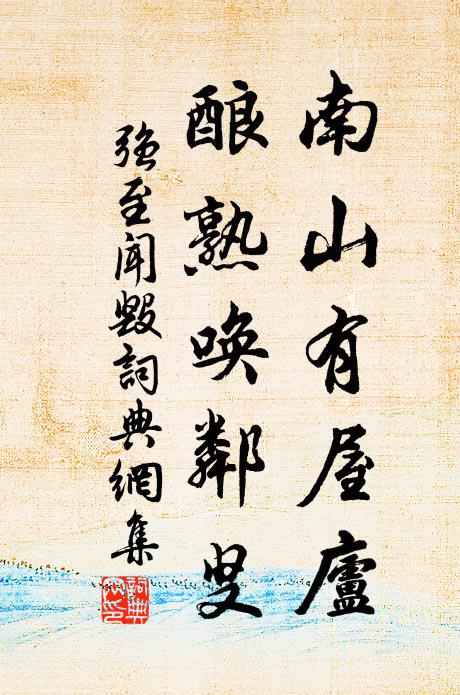 南山有屋廬
酿熟唤鄰叟
強至聞毀詞典網集